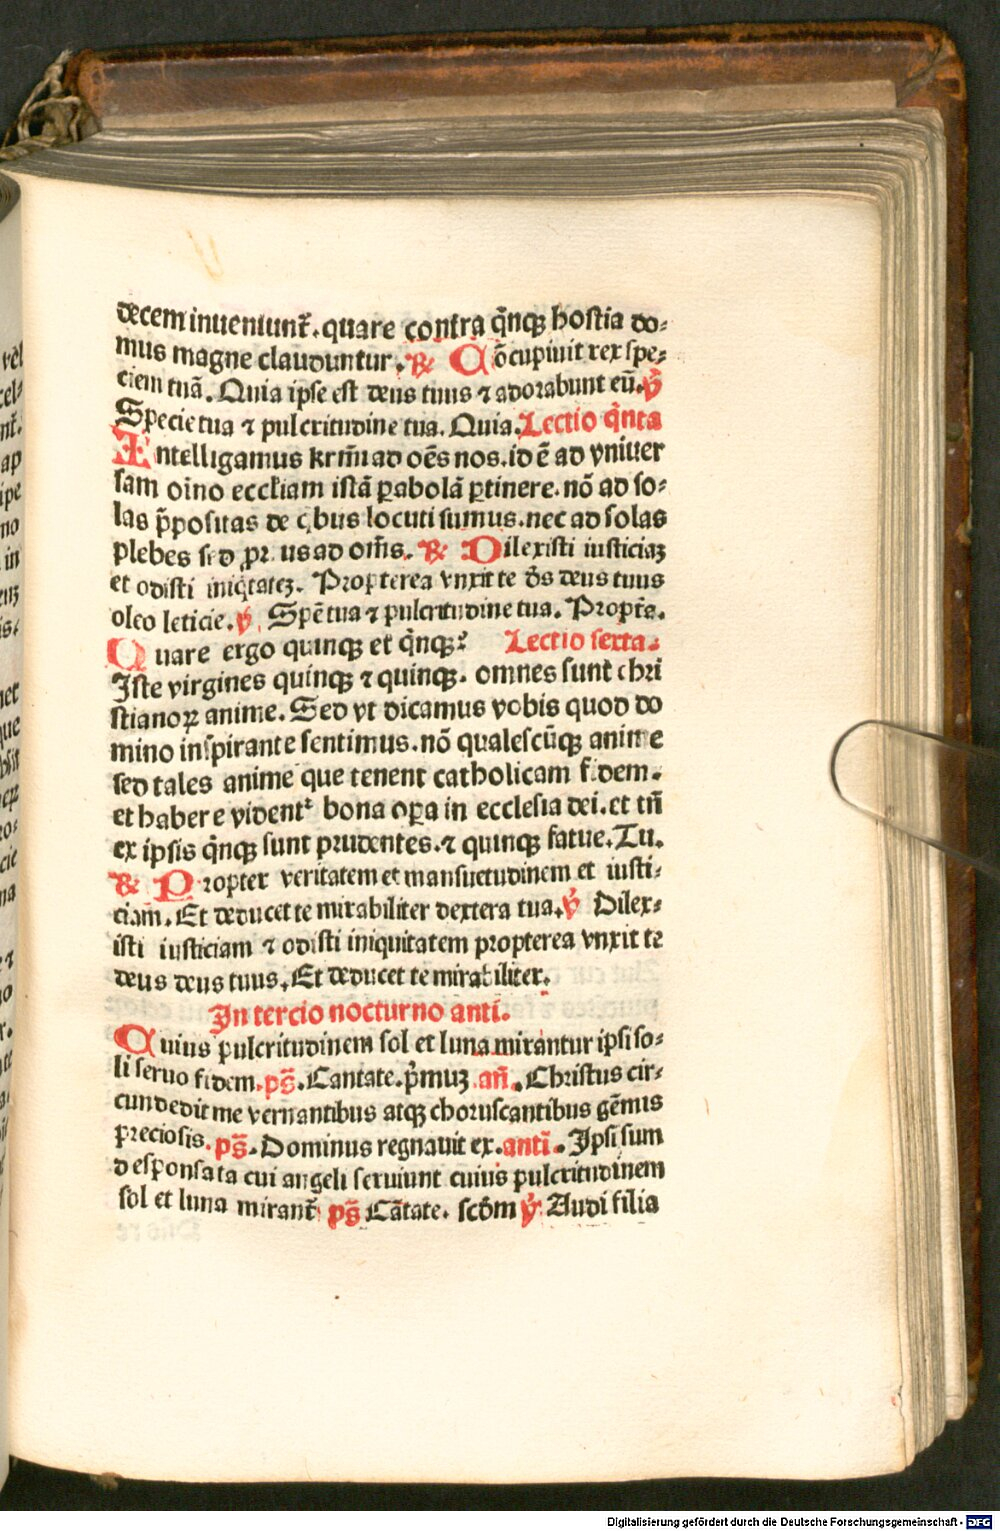 decem inueniunt᷑. quare contra q̃nqꝫ hostia do⸗
mus magne clauduntur. ℟ Cõcupiuit rex spe⸗
ciem tuã. Quia ipse est deus tuus ⁊ adorabunt eũ. ℣
Specie tua ⁊ pulcritudine tua. Quia. Lectio q̃nta
Intelligamus kr̃mi ad oẽs nos. id ẽ ad vniuer
sam oĩno eccliam istã ꝑabolã ꝑtinere. nõ ad so⸗
las p̃positas de qbus locuti sumus. nec ad solas
plebes sed ad om̃s. ℟ Dilexisti iusticiaꝫ
et odisti iniq̃tateꝫ. Propterea vnxit te ds̃ deus tuus
oleo leticie. ℣ Spẽ tua ⁊ pulcritudine tua. Propt̃a.
Quare ergo quinqꝫ et q̃nqꝫ? Lectio sexta.
Iste virgines quinqꝫ ⁊ quinqꝫ. omnes sunt chri
stianoꝝ anime. Sed vt dicamus vobis quod do
mino inspirante sentimus. nõ qualescũqꝫ anime
sed tales anime que tenent catholicam fidem.
et habere vident᷑ bona oꝑa in ecclesia dei. et tñ
ex ipsis q̃nqꝫ sunt prudentes. ⁊ quinqꝫ fatue. Tu.
℟ Propter veritatem et mansuetudinem et iusti⸗
ciam. Et deducet te mirabiliter dextera tua. ℣ Dilex⸗
isti iusticiam ⁊ odisti iniquitatem propterea vnxit te
deus deus tuus. Et deducet te mirabiliter.
In tercio nocturno anti.
Cuius pulcritudinem sol et luna mirantur ipsi so⸗
li seruo fidem. ps̃. Cantate. p̃muꝫ añ. Christus cir⸗
cundedit me vernantibus atqꝫ choruscantibus gẽmis
preciosis. ps̃. Dominus regnauit ex. anti. Ipsi sum
desponsata cui angeli seruiunt cuius pulcritudinem
sol et luna mirant᷑ ps̃ Cãtate. scdm ℣ Audi filia
Digitalisierung gefördert durch die Deutsche Forschungsgemeinschaft - DFG